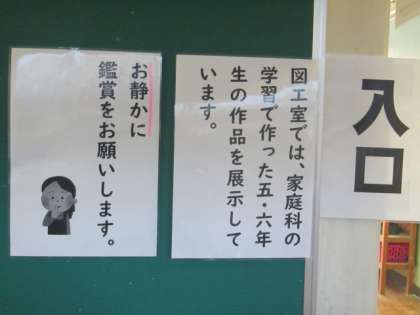 入口
図工室では、家庭科の
学習で作った五・六年
生の作品を展示して
います。
お静かに
鑑賞をお願いします。